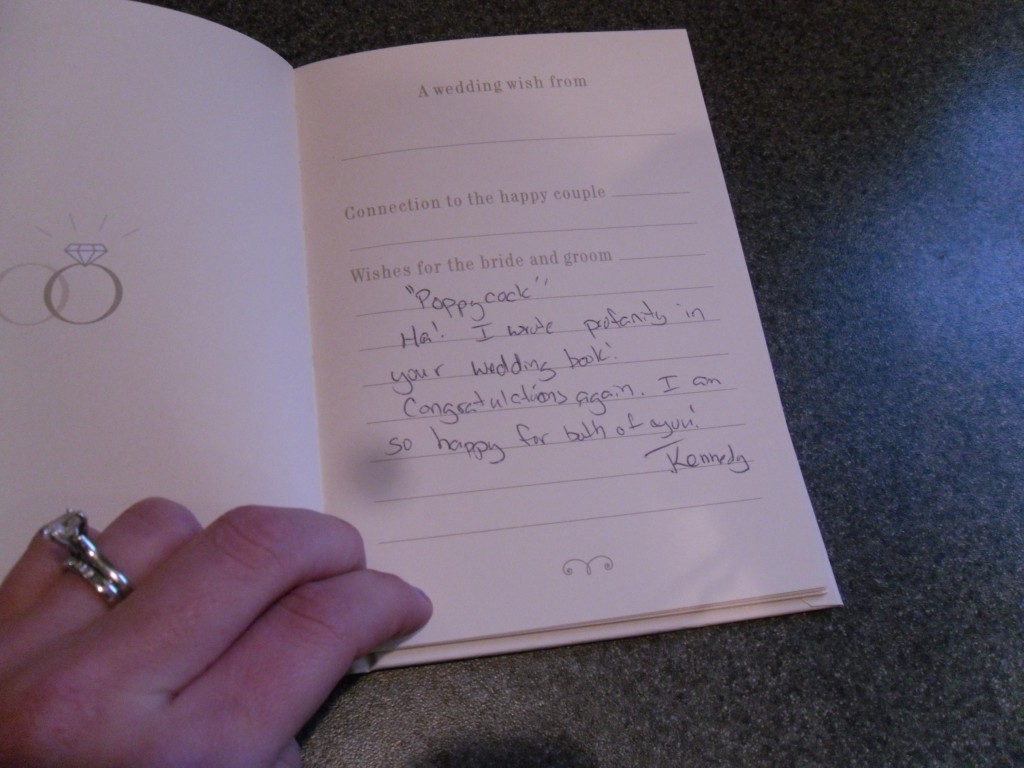 A wedding wish from
Connection to the happy couple
Wishes for the bride and groom
"Poppycock"
Ha! I wrote profanity in
your wedding book!
Congratulations again. I am
so happy for both of you!
Kennedy